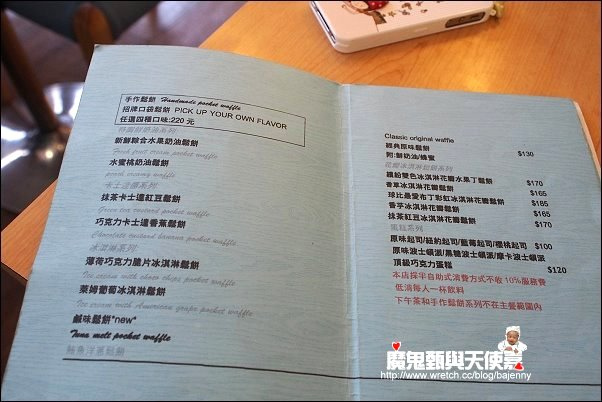 手作鬆餅 Handmade pocket waffle
招牌口袋鬆餅 PICK UP YOUR OWN FLAVOR
任選四種口味:220 元
新鮮綜合水果奶油鬆餅
Fresh fruit cream pocket waffle
水蜜桃奶油鬆餅
peach creamy waffle
卡士達醬系列:
抹茶卡士達紅豆鬆餅
Green tea custard pocket waffle
巧克力卡士達香蕉鬆餅
Chocolate custard banana pocket waffle
冰淇淋系列:
薄荷巧克力脆片冰淇淋鬆餅
Ice cream with choco chips pocket waffle
萊姆葡萄冰淇淋鬆餅
Ice cream with American grape pocket waffle
鹹味鬆餅*new*
Tuna melt pocket waffle
鮪魚洋蔥鬆餅
Classic original waffle
經典原味鬆餅 $130
附:鮮奶油/蜂蜜
花瓣冰淇淋鬆餅系列
繽紛雙色冰淇淋花瓣水果丁鬆餅 $170
香草冰淇淋花瓣鬆餅 $165
球比最愛布丁彩虹冰淇淋花瓣鬆餅 $185
香芋冰淇淋花瓣鬆餅 $165
抹茶紅豆冰淇淋花瓣鬆餅 $170
蛋糕系列
原味起司/紐約起司/藍莓起司/櫻桃起司 $100
原味波士頓派/黑糖波士頓派/摩卡波士頓派
頂級巧克力蛋糕 $120
本店採半自助式消費方式不收 10%服務費
低消每人一杯飲料
下午茶和手作鬆餅系列不在主餐範圍內
魔鬼甄與天使嘉
http://www.wretch.cc/blog/bajenny